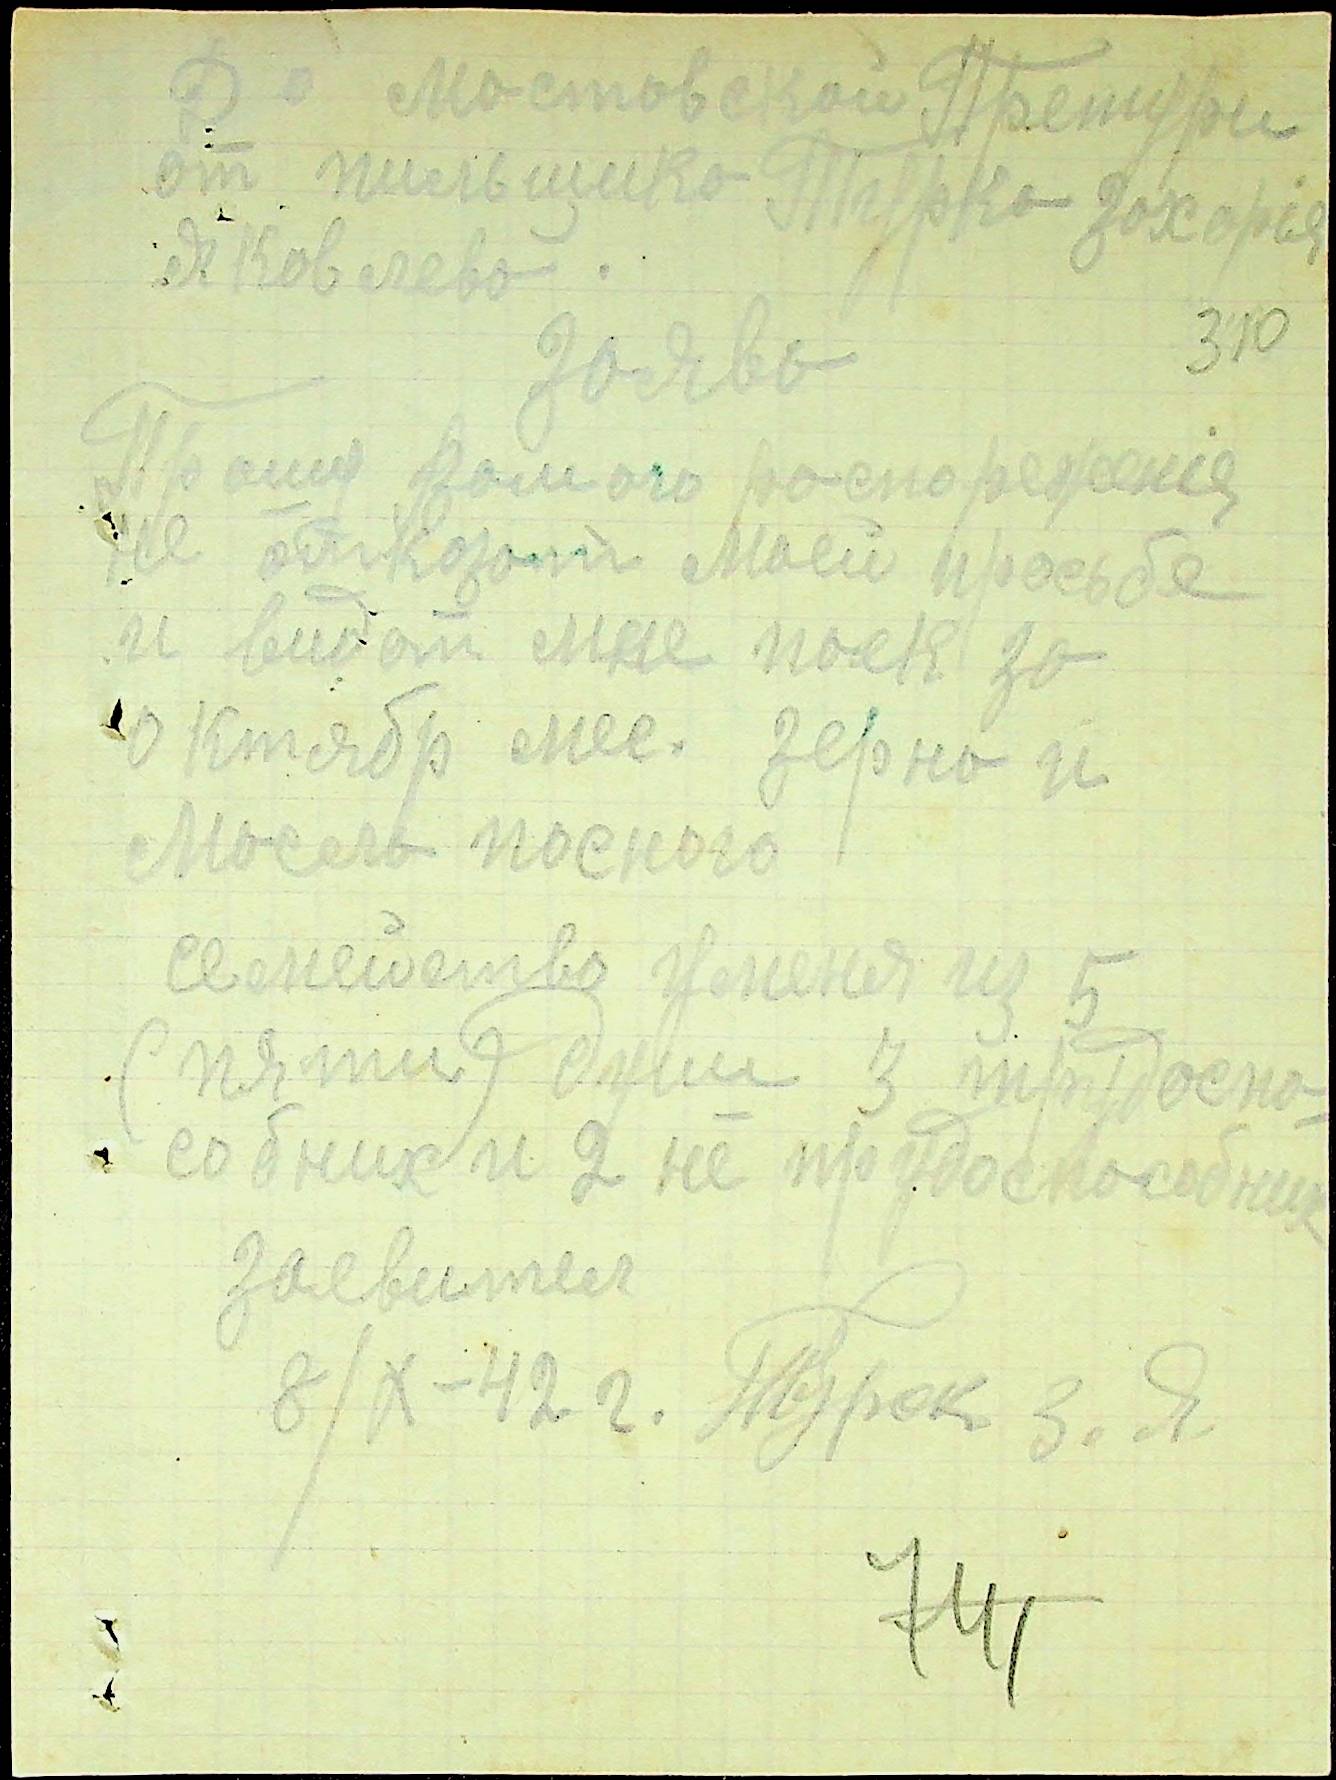 До Мостовской Претури
от пильщика Турка Захарія
Яковлева.
310
Заява
Прошу вашого распореженія
не отказат моей просьбе
и видат мне поек за
октябр мес. зерно и
масела посного
семейство у меня из 5
(пяти) душ 3 трудоспо-
собних и 2 не трудоспособних
Заевител
8/X-42 г. Турок З. Я
74